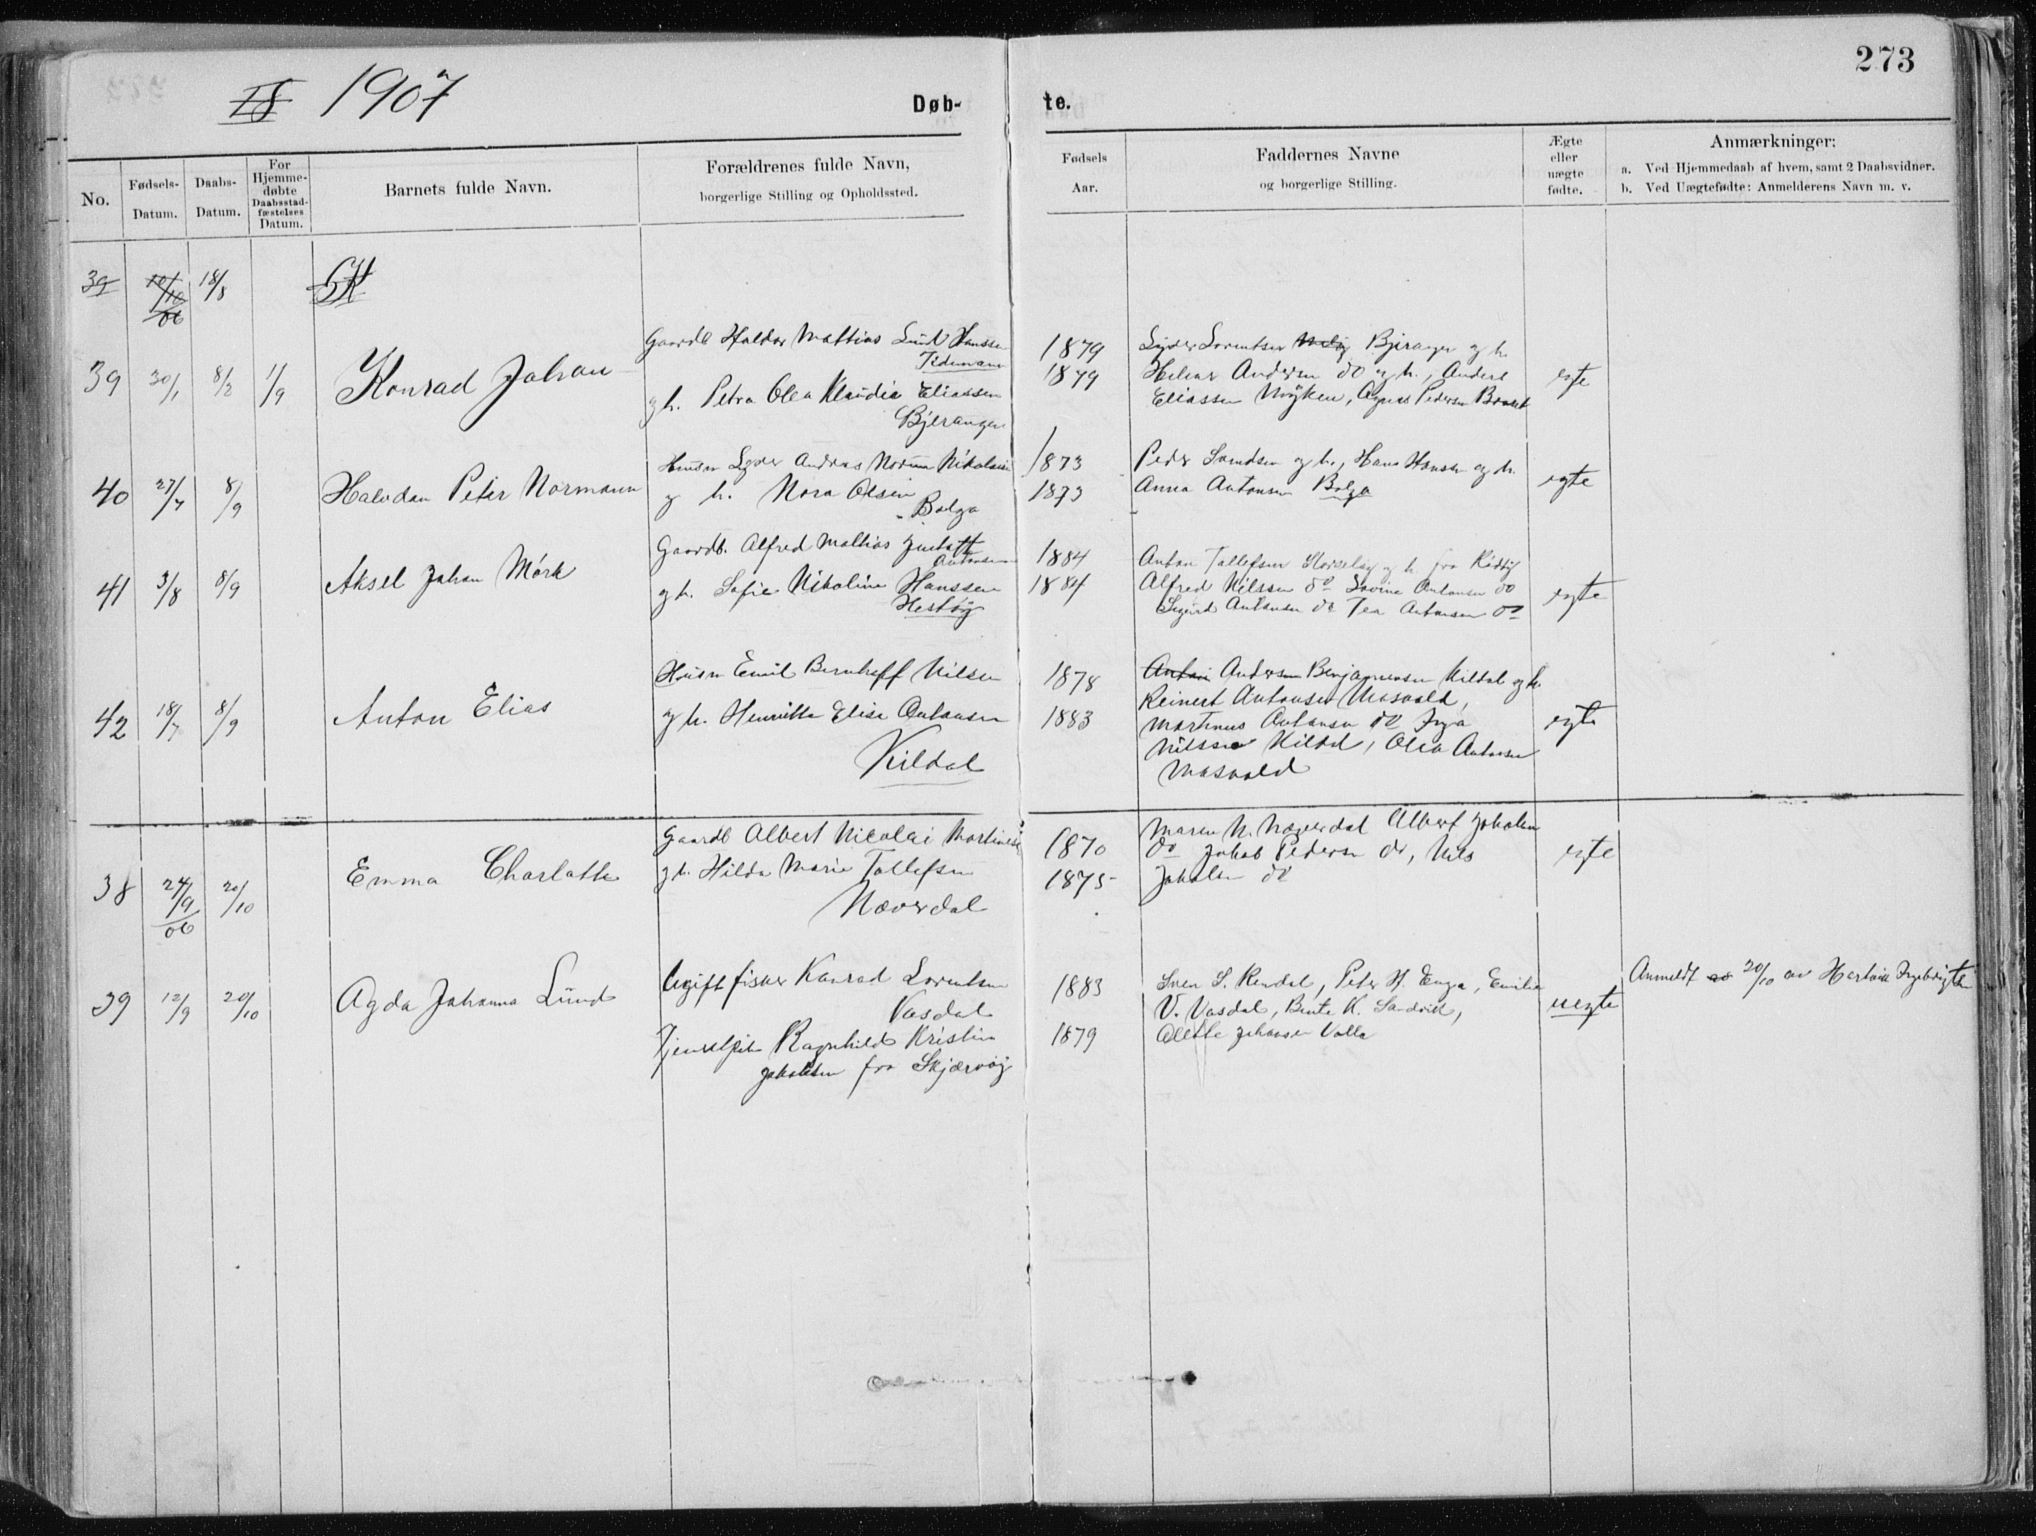 273
1907
Døb-
te.
No.
Fødsels-
Datum.
Daabs-
Datum.
For
Hjemme-
døbte
Daabsstad-
fæstelses
Datum.
Barnets fulde Navn.
Forældrenes fulde Navn,
borgerlige Stilling og Opholdssted.
Fødsels
Aar.
Faddernes Navne
og borgerlige Stilling.
Ægte
eller
uægte
fødte.
Anmærkninger:
a. Ved Hjemmedaab af hvem, samt 2 Daabsvidner.
b. Ved Uægtefødte: Anmelderens Navn m. v.
39 10/10 06 18/8
39 30/1 8/2 1/9 Konrad Johan
Gaardb Haldor Mathias Lund Hanssen
Tidemann
og h. Petra Olea Klaudia Eliassen
Bjerangen
1879
1879
Lorentsen Bjerangen og h.
Hilmar Andersen do og h., Anders
Eliassen Myken, Agnes Pedersen
egte
40 27/7 8/9 Halvdan Peter Normann
Andreas Nikolaisen
og h. Nora Olsen
Bolga
1873
1873
Peder og h., Hans Hansen og h.
Anna Antonsen Bolga
egte
41 3/8 8/9 Aksel Johan Mørk
Gaardb. Alfred Mathias
Antonsen
og h. Sofie Nikoline Hanssen
Hestøy
1884
1884
Anton Tollefsen og h. fra Rødøy
Alfred Nilssen do Antonsen do
Sigurd Antonsen do Tea Antonsen do
egte
42 18/7 8/9 Anton Elias
Husm Emil Bernhoff Nilsen
og h. Henritte Elisa Antonsen
Kildal
1878
1883
Anton Andersen Benjaminsen Kildal og h.
Reinert Antonsen Masvold,
Martinus Antonsen do Inga
Nilssen Kildal, Olea Antonsen
Masvold
egte
38 24/9 06 20/10 Emma Charlotte
Gaardb Albert Nicolai Martinsen
og h. Hilda Marie Tollefsen
Næverdal
1870
1875
Maren N. Næverdal Albert Jakobsen
do Jakob Pedersen do, Nils
Jakobsen do
egte
39 12/9 20/10 Agda Johanna Lund
Ugift fisker Konrad Lorentsen
Vasdal
Ragnhild Kristin
Jakobsen fra Skjærvøy
1883
1879
Sven S. Rendal, Peter H. Enga, Emilie
V. Vasdal, Bente K. Sandvik,
Olette Johansen Valla
uegte
Anmeldt 20/10 av Hartvik Ingebrigts